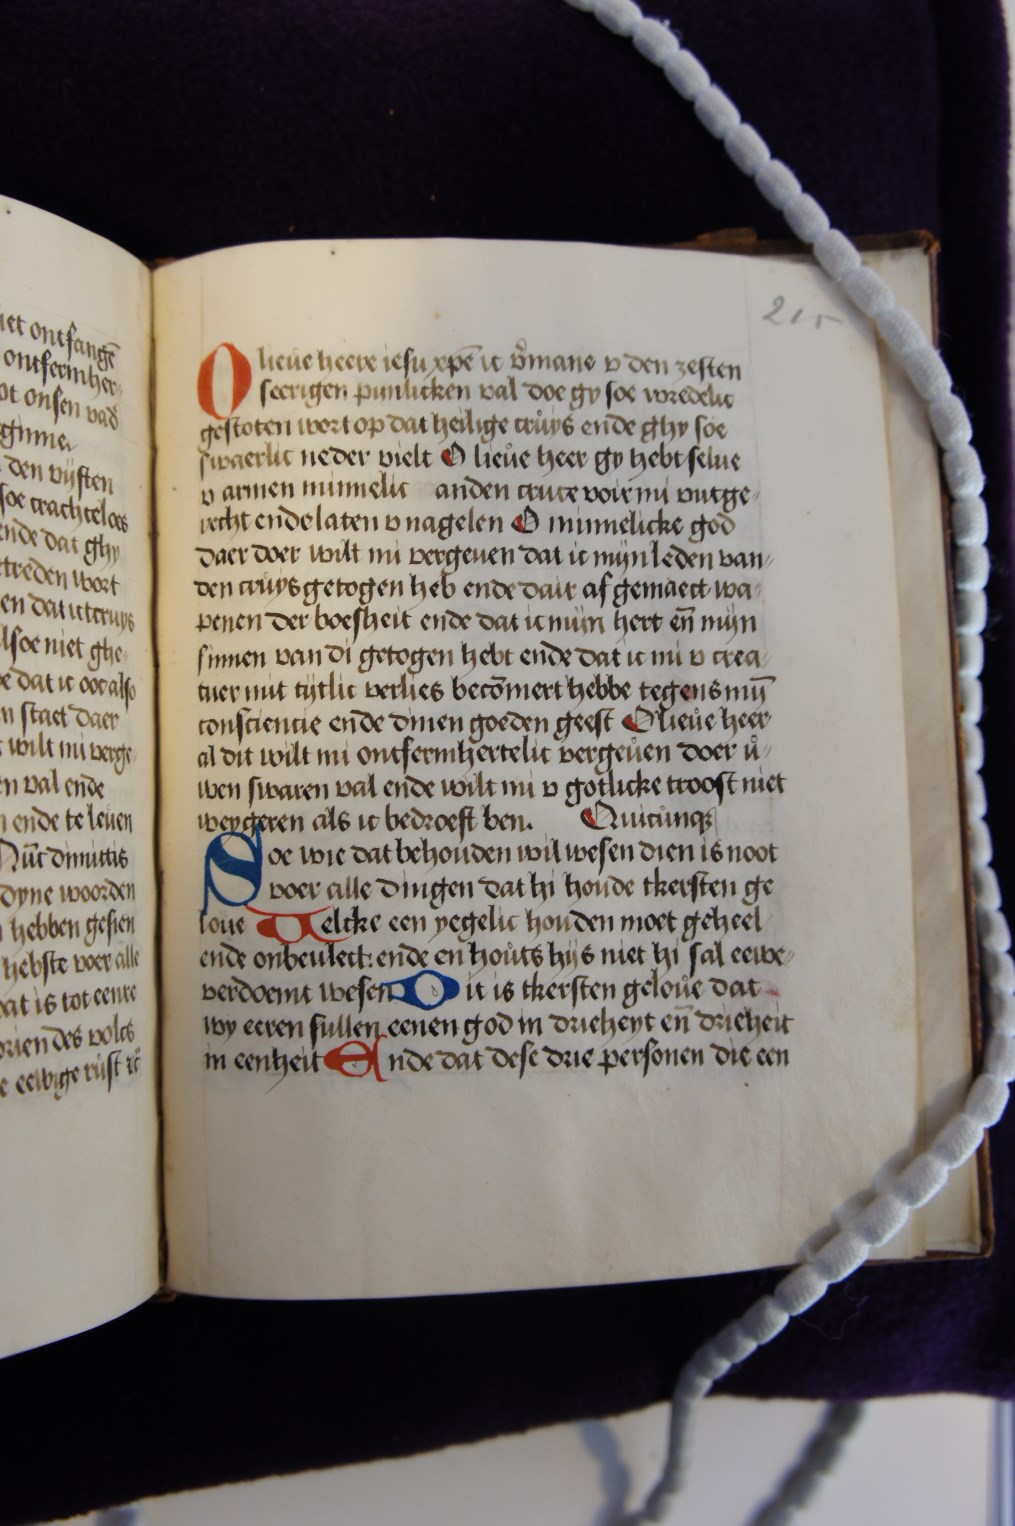 iet ontfangē
ontfermher
ot onsen vad
den vijften
soe crachteloes
ende dat ghy
treden wort
en dat ic tcruys
lsoe niet ghe
e dat ic oec also
n staet daer
wilt mi verge
n val ende
n ende te leuen
Nūc dimittis
dyne woorden
hebben gesien
hebste voer alle
at is tot eenre
orien des volcs
e eewige rust
215
O lieue heere iesu xpē ic v̄mane v den zesten
seerigen punlicken val doe gy soe wredelic
gestoten wort op dat heilige cruys ende ghy soe
swaerlic neder vielt O lieue heer gy hebt selue
v armen minnelic anden cruce voir mi vutge
recht ende laten v nagelen O minnelicke god
daer doer wilt mi vergeuen dat ic mijn leden van
den cruys getogen heb ende dair af gemaect wa
penen der boesheit ende dat ic mijn hert eñ mijn
sinnen van di getogen hebt ende dat ic mi v crea
tuer mit tijtlic verlies becōmert hebbe tegens mijn
consciencie ende dinen goeden geest O lieue heer
al dit wilt mi ontfermhertelic vergeuen doer u
wen swaren val ende wilt mi v gotlicke troost niet
weygeren als ic bedroeft ben. Quicunq
Soe wie dat behouden wil wesen dien is noot
voer alle dingen dat hi houde tkersten ge
loue Welcke een yegelic houden moet geheel
ende onbeulect: ende en houts hijs niet hi sal eewe
verdoemt wesen Dit is tkersten geloue dat
wy eeren sullen eenen god in drieheyt eñ drieheit
in eenheit Ende dat dese drie personen die een